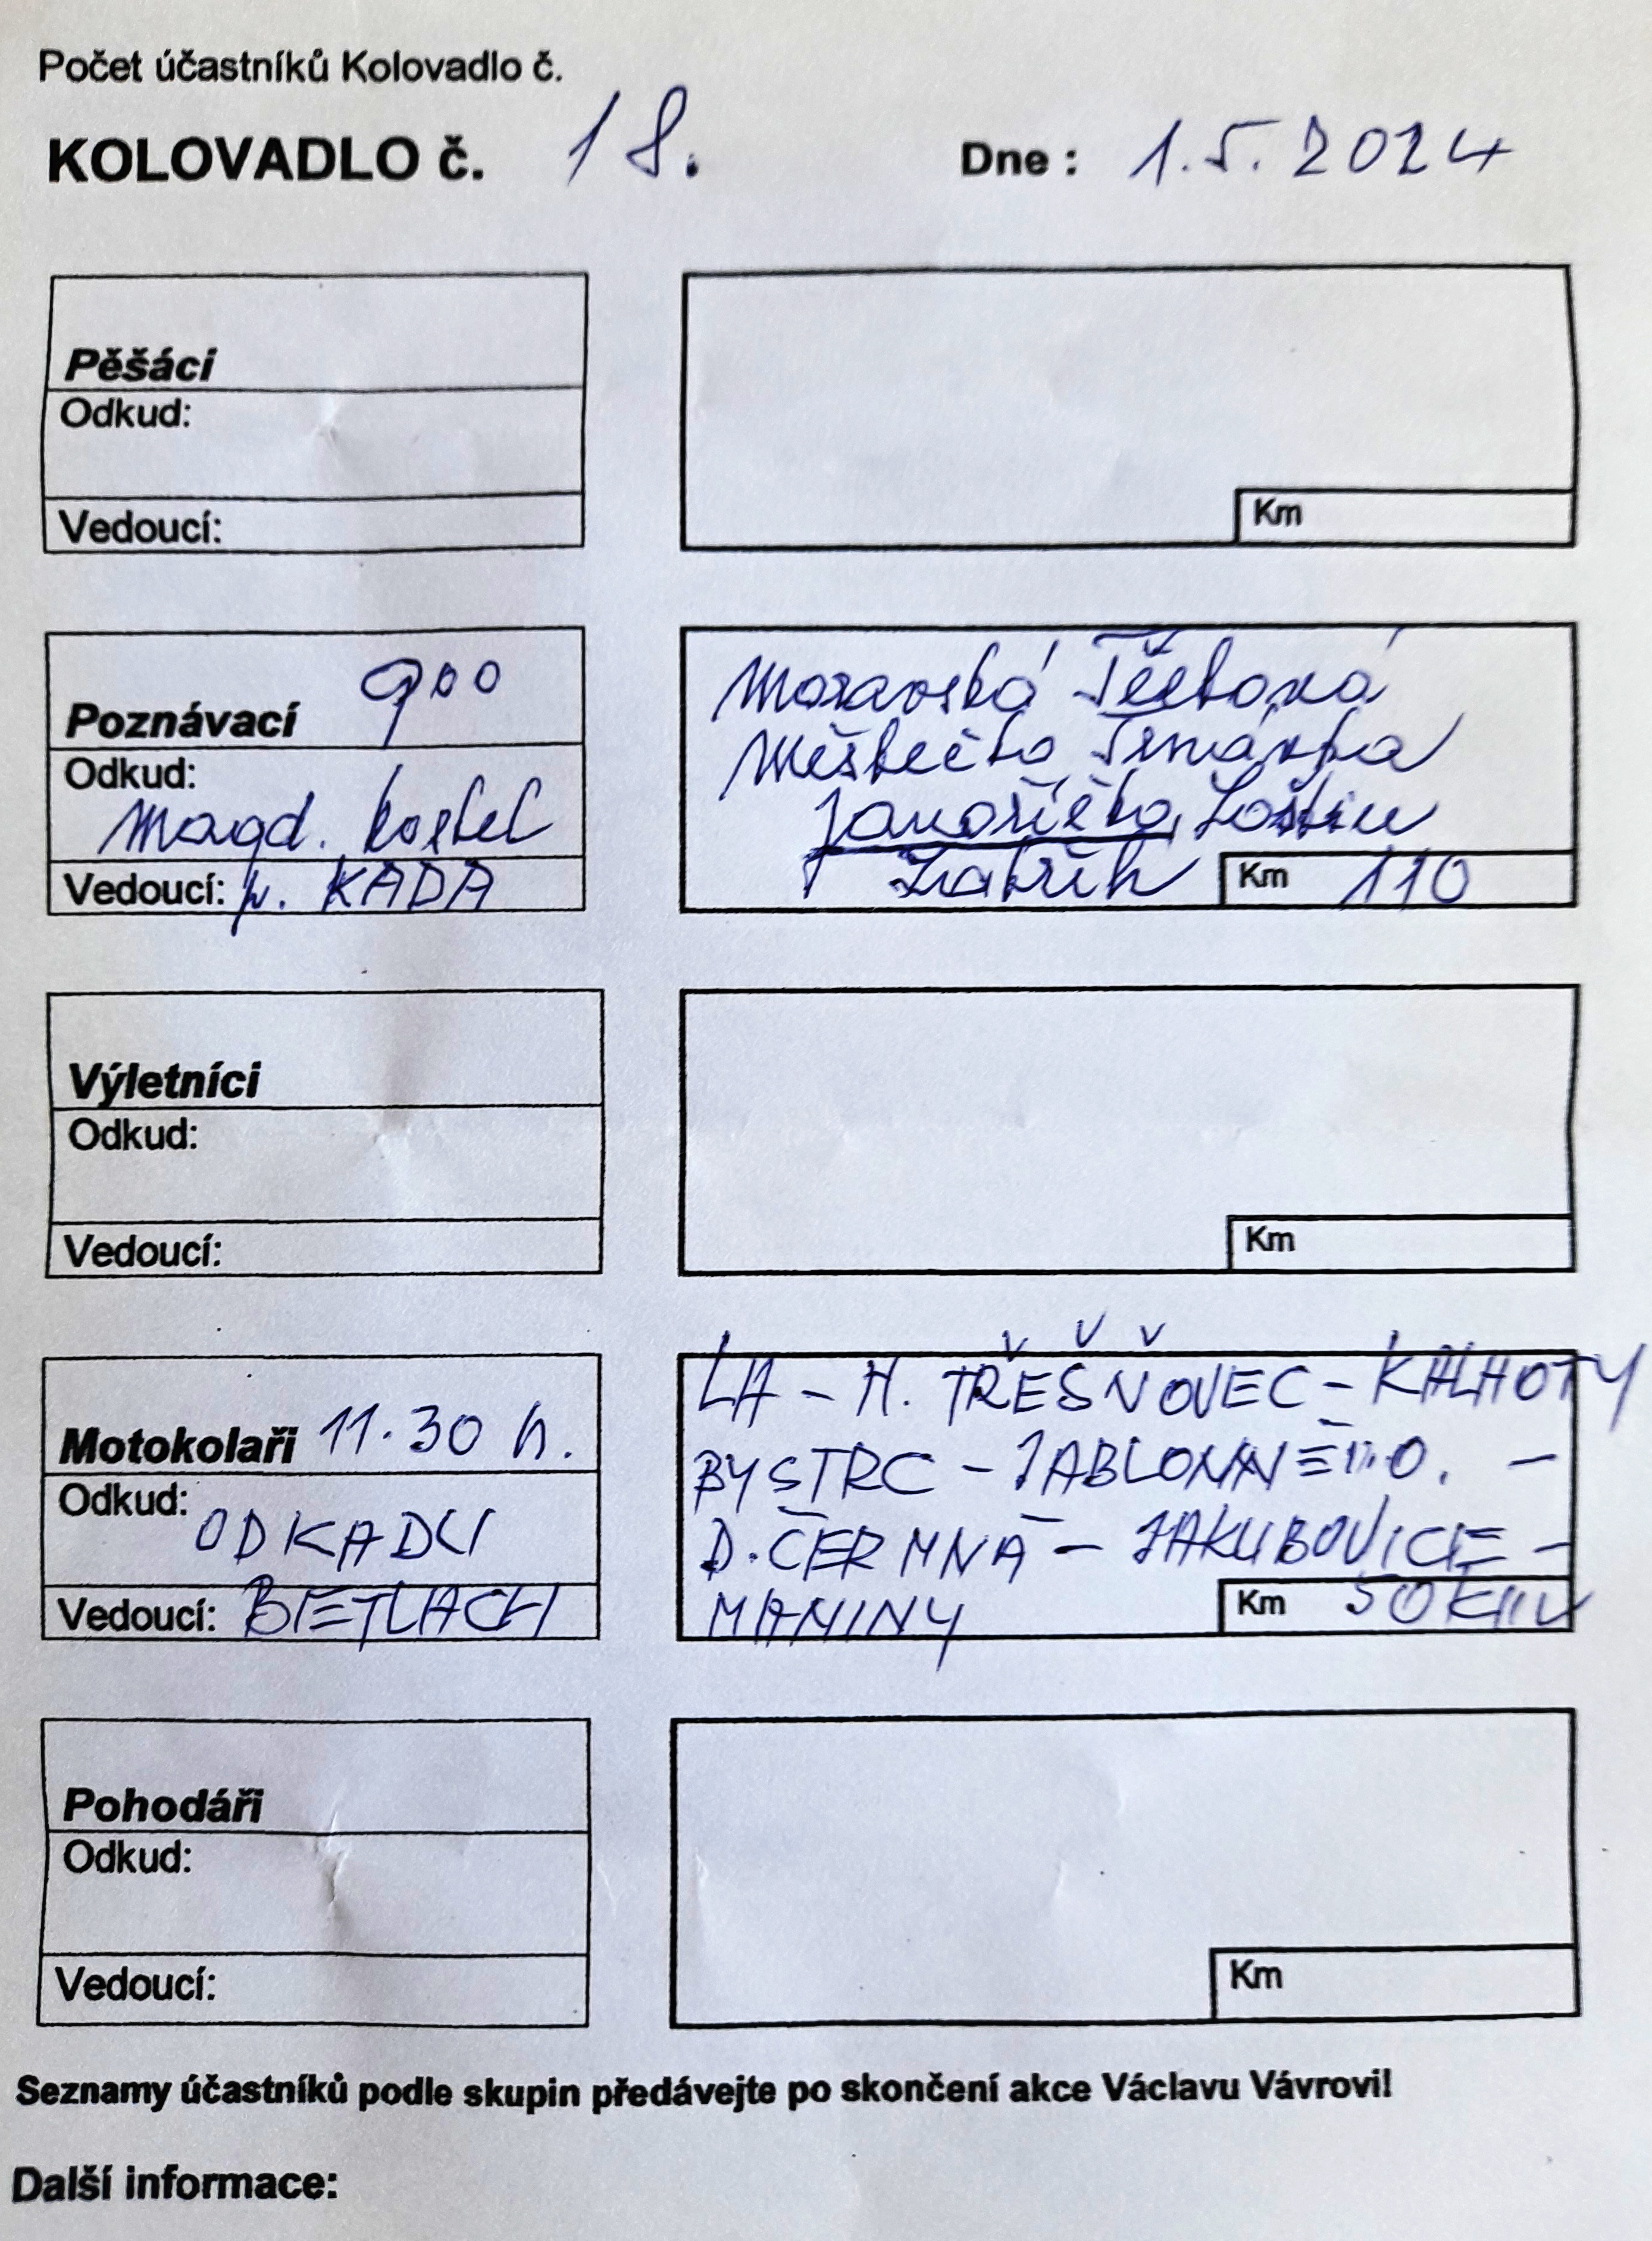 Počet účastníků Kolovadlo č.
KOLOVADLO č. 18. Dne : 1.5.2024
Pěšáci
Odkud:
Vedoucí:
Km
Poznávací 9⁰⁰
Odkud:
Magd. kostel
Vedoucí: p. KADA
Moravská Třebová
Městečko Trnávka
Loštice
Zábřeh
Km 110
Výletníci
Odkud:
Vedoucí:
Km
Motokolaři 11.30 h.
Odkud:
OD KADLI
Vedoucí: BETLACH
LA - H. TŘEŠŇOVEC - KALHOTY
BYSTŘEC - JABLONNÉ n.O. -
D. ČERMNÁ - JAKUBOVICE -
MANINY
Km 50 km
Pohodáři
Odkud:
Vedoucí:
Km
Seznamy účastníků podle skupin předávejte po skončení akce Václavu Vávrovi!
Další informace: